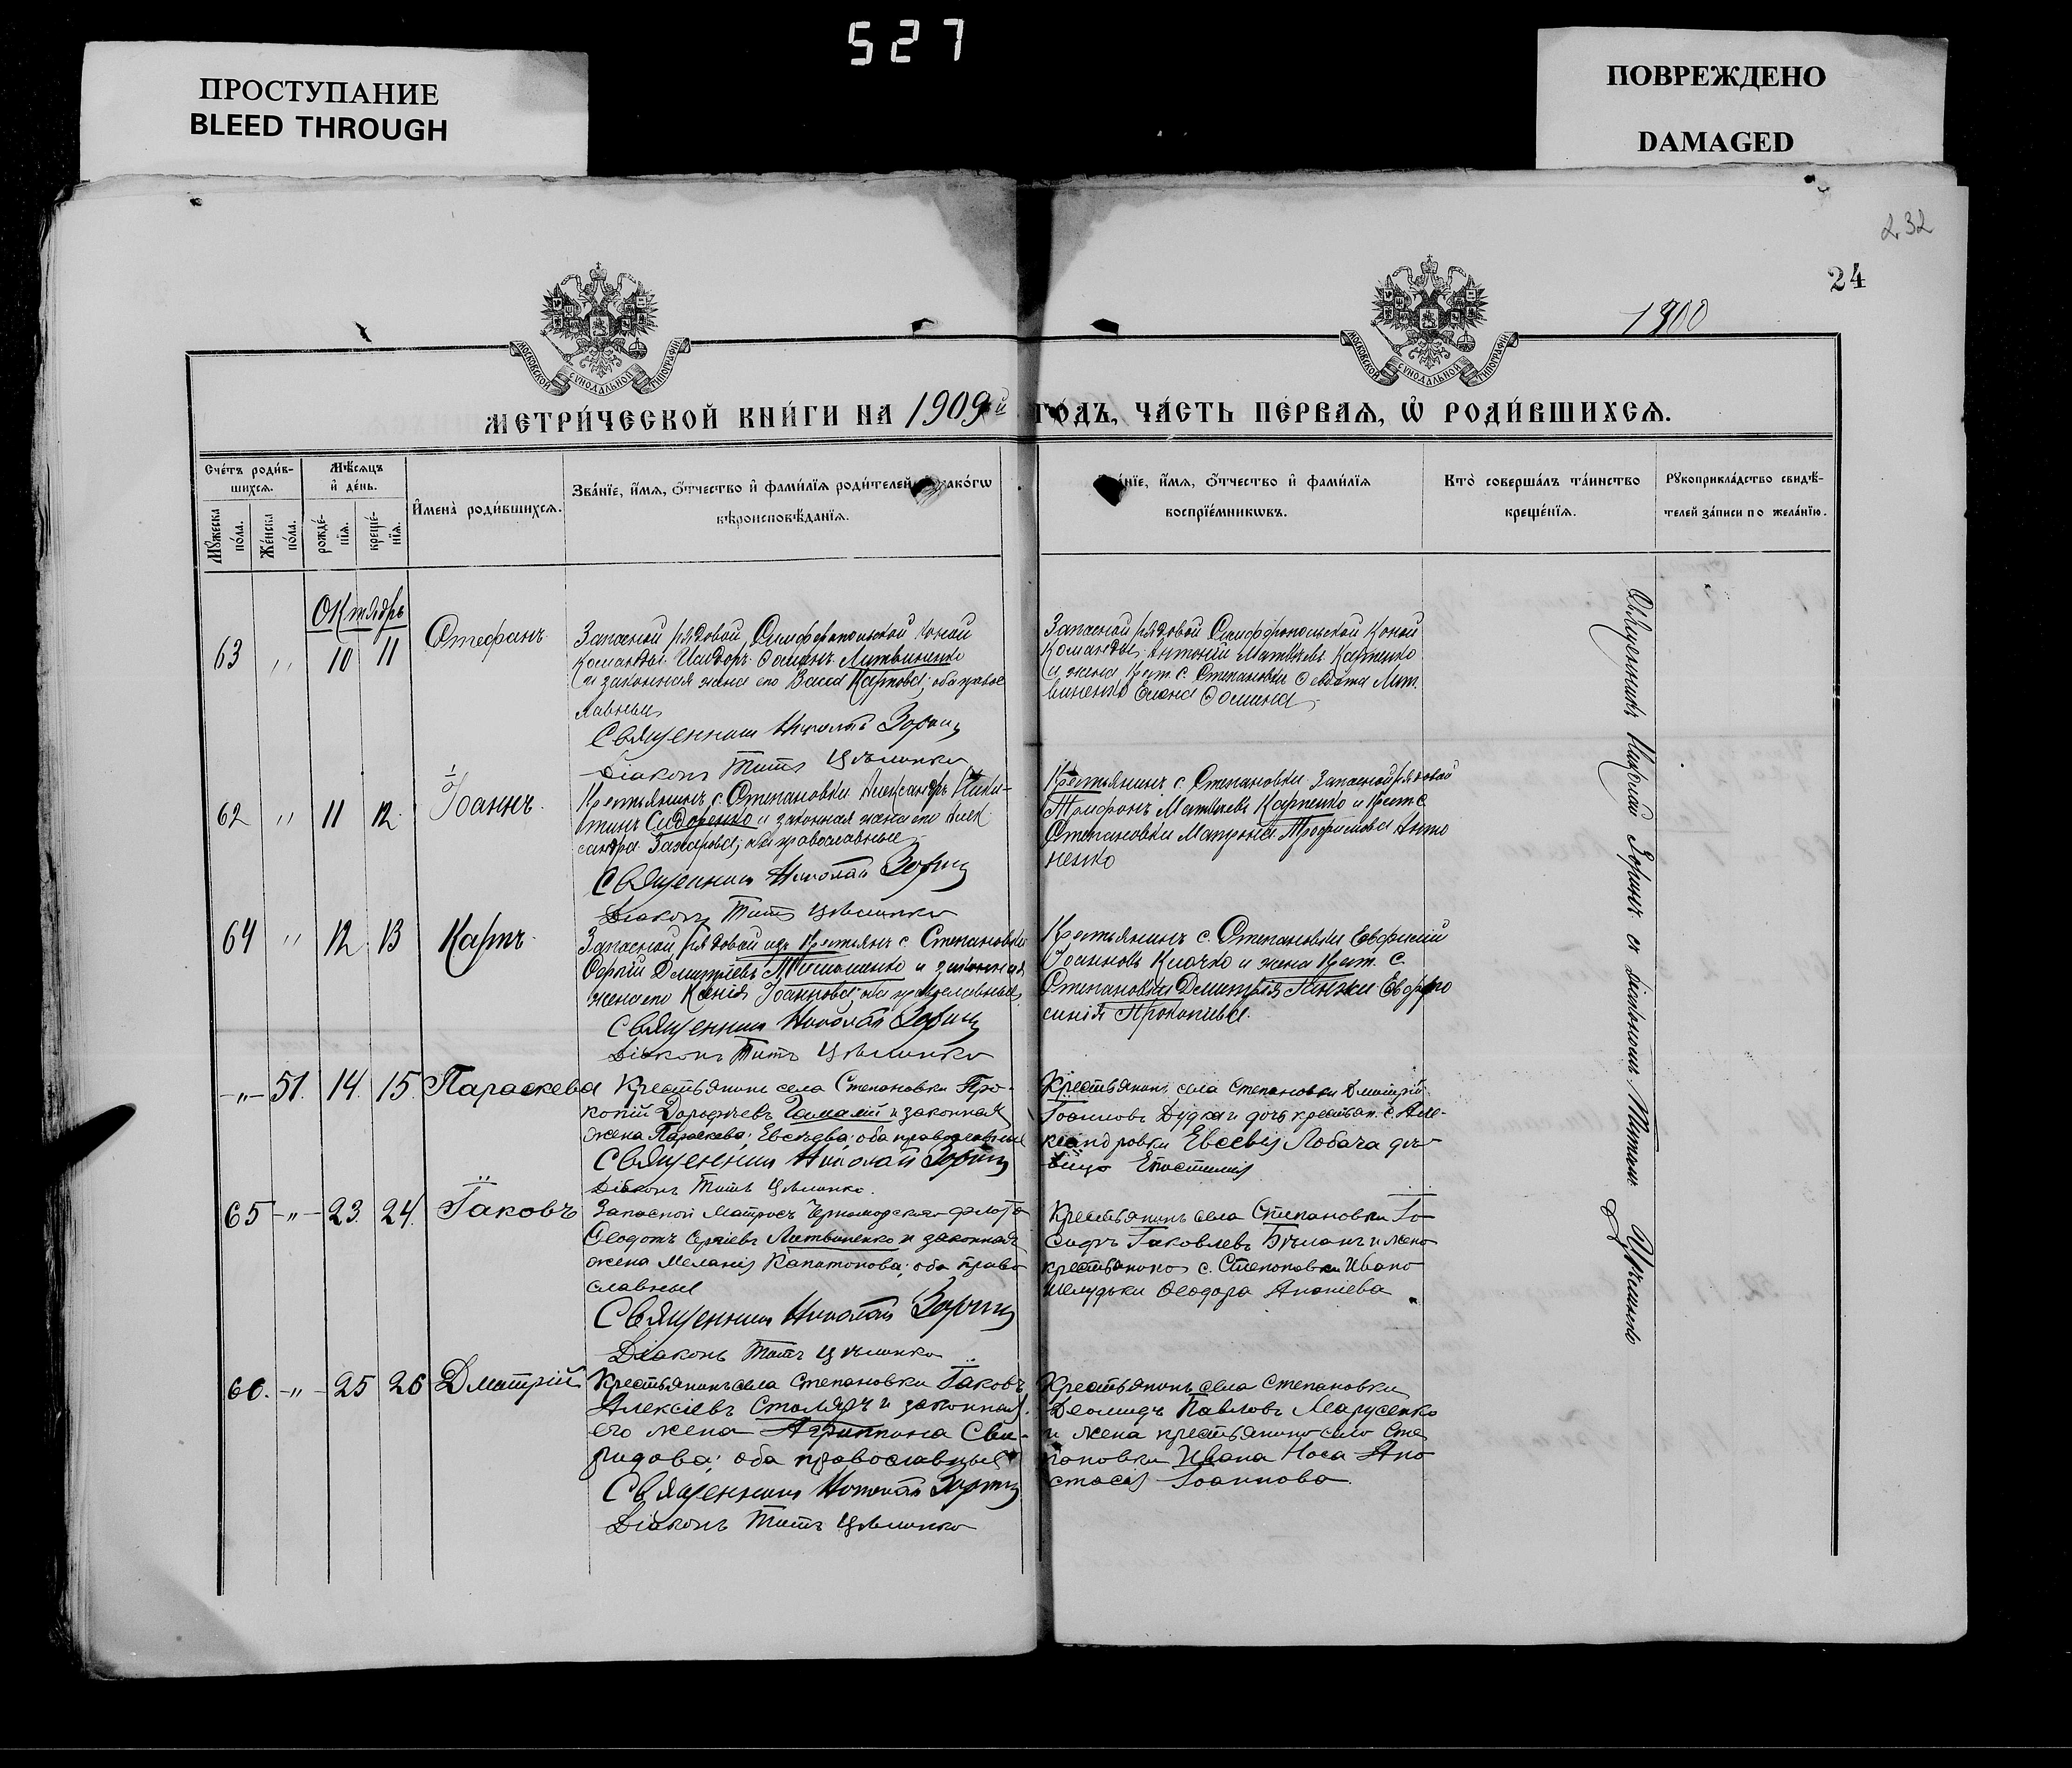 527
ПРОСТУПАНИЕ
BLEED THROUGH
ПОВРЕЖДЕНО
DAMAGED
232
24
1900
МОСКОВСКОЙ СѴНОДАЛЬНОЙ ТИПОГРАФІИ
МОСКОВСКОЙ СѴНОДАЛЬНОЙ ТИПОГРАФІИ
МЕТРИ́ЧЕСКОЙ КНИ́ГИ НА 1909й ГО́ДЪ, ЧА́СТЬ ПЕ́РВАѦ, Ѡ҆ РОДИ́ВШИХСѦ.
Сче́тъ роди́в-
шихсѧ.
Мꙋ́жеска
по́ла.
Же́нска
по́ла.
Мѣ́сѧцъ
и҆ де́нь.
рожде́-
нїѧ.
креще́-
нїѧ.
И҆мена̀ роди́вшихсѧ.
Зва́нїе, и҆́мѧ, ѻ҆́тчество и҆ фами́лїѧ роди́телей
вѣроисповѣ́данїѧ.
и҆́мѧ, ѻ҆́тчество и҆ фами́лїѧ
воспрїе́мникѡвъ.
Кто̀ соверша́лъ та́инство
креще́нїѧ.
Рꙋкоприкла́дство свидѣ́-
телей за́писи по жела́нїю.
Октябрь
63 " 10 11 Стефанъ
Запасной рядовой Симферопольской конной
команды Исидоръ Литвиненко
и законная жена его Васса Карпова; оба правос
лавные
Священникъ Николай Зоринъ
Діаконъ Титъ
Запасной рядовой Симферопольской конной
команды Антоній Матвѣевъ Карпенко
и жена крест. с. Степановки Ѳеодота Лит.
виненко Елена
62 " 11 12 Іоаннъ
Крестьянинъ с. Степановки Александръ Ники-
тинъ Сидоренко и законная жена его Алек
сандра Захарова; оба православные
Священникъ Николай Зоринъ
Діаконъ Титъ
Крестьянинъ с. Степановки Запасной рядовой
Трифонъ Матвѣевъ Карпенко и крест. с.
Степановки Матрона Трофимова Анто
ненко
64 " 12 13 Карпъ
Запасной рядовой изъ крестьянъ с. Степановки
Сергій Димитріевъ и законная
жена его Ксенія Іоаннова; оба православные
Священникъ Николай Зоринъ
Діаконъ Титъ
Крестьянинъ с. Степановки Евфимій
Іоанновъ Клочко и жена крест. с.
Степановки Димитрія Евфро
синія Прокопіева.
-"- 51. 14. 15. Параскева
Крестьянинъ села Степановки Про-
копій Дорофеевъ и законная
жена Параскева Евсѣева; оба православные
Священникъ Николай Зоринъ
Діаконъ Титъ
Крестьянинъ села Степановки Дмитрій
Іоанновъ Дудка и дочь крестьян. с. Але-
ксандровки Евсевія Лобача дѣ-
вица
65 -"- 23. 24. Іаковъ
Запасной Матросъ Черноморскаго флота
Ѳеодотъ Сергіевъ Литвиненко и законная
жена Меланія Капитонова; оба право
славные
Священникъ Николай Зоринъ
Діаконъ Титъ
Крестьянинъ села Степановки Іо
сифъ Іаковлевъ и жена
крестьянина с. Степановки Ивана
Шелудьки Ѳеодора Ананіева
66. -"- 25 26 Дмитрій
Крестьянинъ села Степановки Іаковъ
Алексіевъ Столяръ и законная
его жена Агриппина Сви-
ридова; оба православные
Священникъ Николай Зоринъ
Діаконъ Титъ
Крестьянинъ села Степановки
Діомидъ Павловъ Марусенко
и жена крестьянина села Сте
пановки Ивана Носа Ана
стасія Іоаннова.
Священникъ Николай Зоринъ съ діакономъ Титомъ